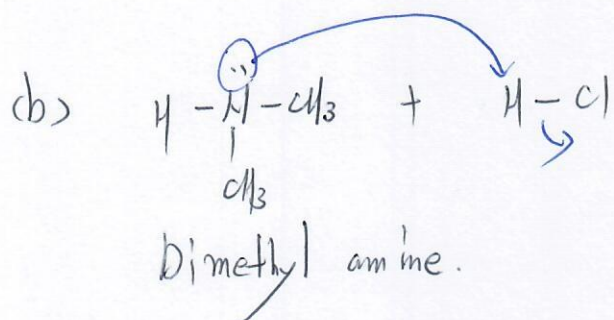 (b) H - N̈ - CH3 + H - Cl
|
CH3
Dimethyl amine.